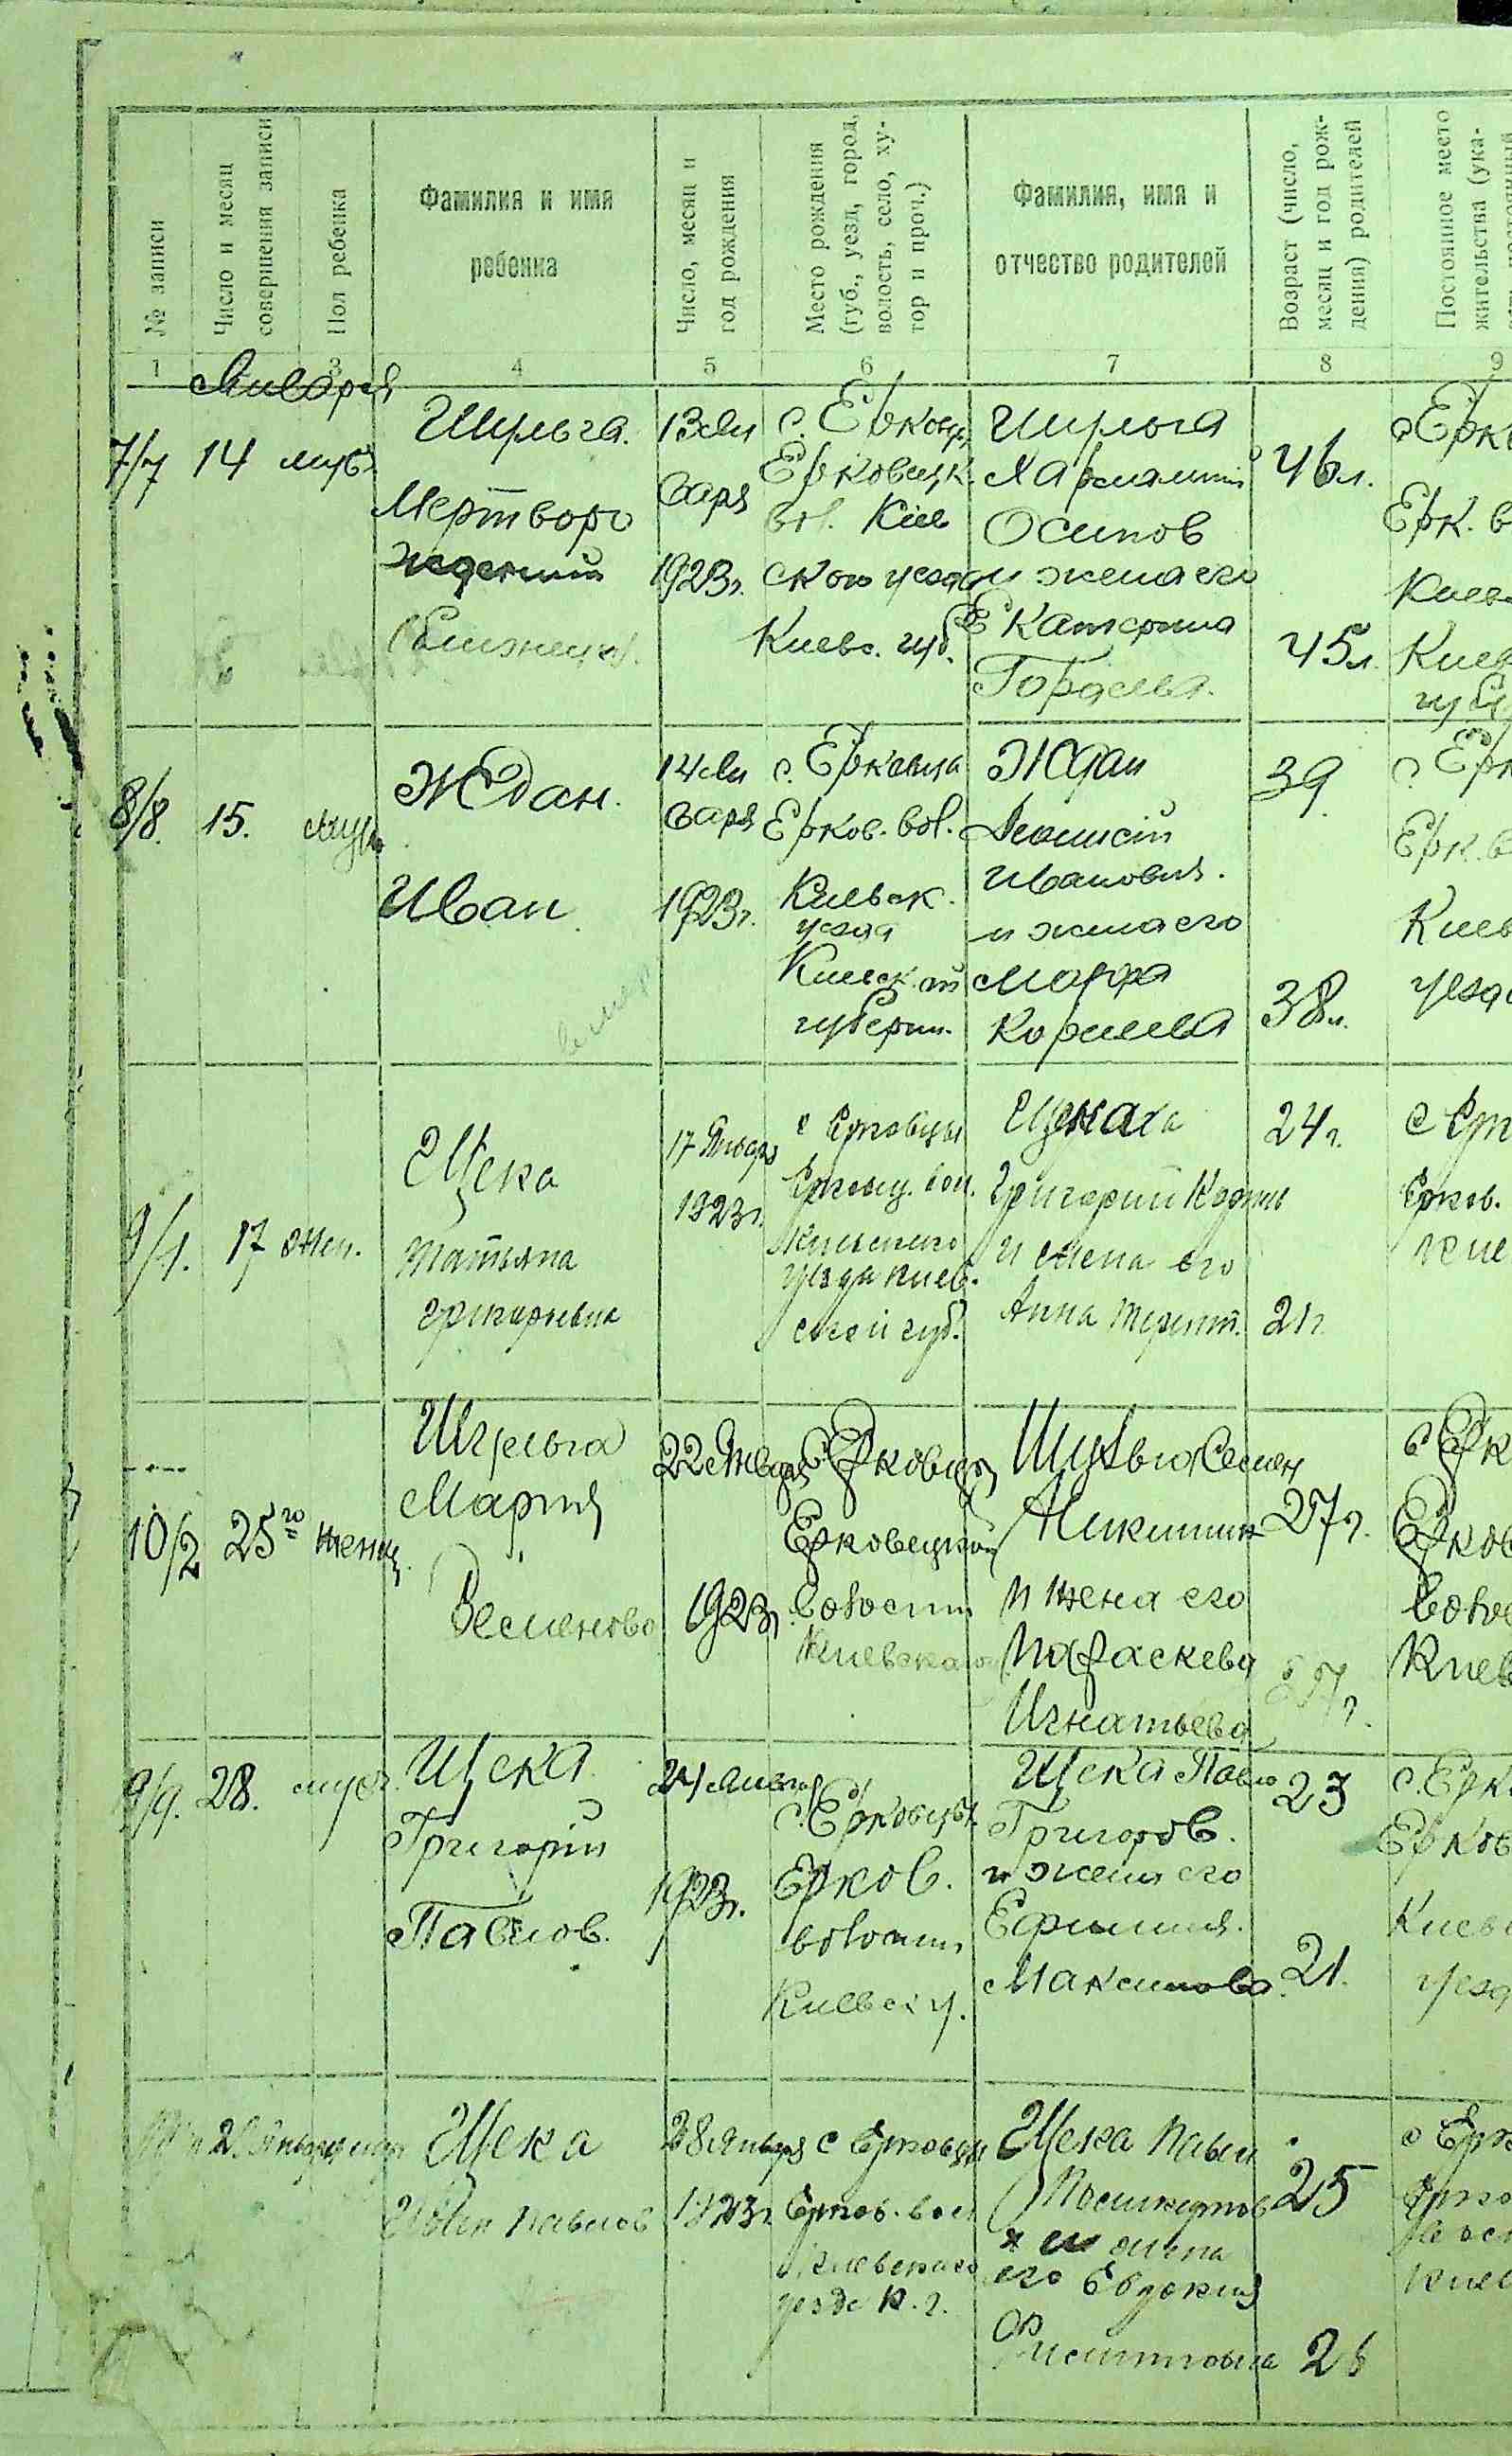 № записи
Число и месяц
совершения записи
Пол ребенка
Фамилия и имя
ребенка
Число, месяц и
год рождения
Место рождения
(губ., уезд, город,
волость, село, ху-
тор и проч.)
Фамилия, имя и
отчество родителей
Возраст (число,
месяц и год рож-
дения) родителей
Постоянное место
жительства (ука-
1 3 4 5 6 7 8 9
Января
7/7
14
муж.
Шульга.
Мертворо
жденный
13 Ян
варя
1923г.
с. Ерковцы
Ерковецк.
вол. Киев
ского уезда
Киевс. губ.
Шульга
Харлампий
Осипов
и жена его
Екатерина
Гордеева.
46 л.
45 л.
с. Ерко
Ерк. в
Киев
Киев
губ
8/8.
15.
муж
Ждан.
Иван
14 Ян
варя
1923г.
с. Ерковца
Ерков. вол.
Киевск.
уезда
Киевск.
губерн.
Ждан
Дионисий
Иванович.
и жена его
Марфа
Корнеева
39
38 л.
с. Ерк
Ерк. в
Киев
уезда
9/1.
17
жен.
Щека
Татьяна
Григорьевна
17 Января
1923г.
с Ерковцы
Ерковец. вол.
Киевского
уезда Киев.
ской губ.
Щека
Григорий
и жена его
Анна Терент.
24 г.
21 г
с Ерк
Ерков.
Кие
10/2
25го
женс.
Шульга
Мария
Семеново
22 Января
1923г
с. Ерковцы
Ерковецкой
волости
Киевскаго
Шульга Семен
Никитин
и жена его
Параскева
Игнатьева
27 г.
27 г.
с Ерк
Ерков
воло
Киев
9/9.
28.
муж.
Щека
Григорий
Павлов.
24 Января
1923г.
с. Ерковцы
Ерков.
волости
Киевск у.
Щека Павло
Григоров.
и жена его
Ефимия.
Максимова.
23
21.
с. Ерк
Ерков
Киев
уезд
Января
Щека
Иван Павлов
28 Января
1923г
с Ерковцы
Ерков. вол
Киевскаго
уезда К. г.
Щека Павел
и жена
его Евдокия
25
26
с Ерк
Ерко
Киев